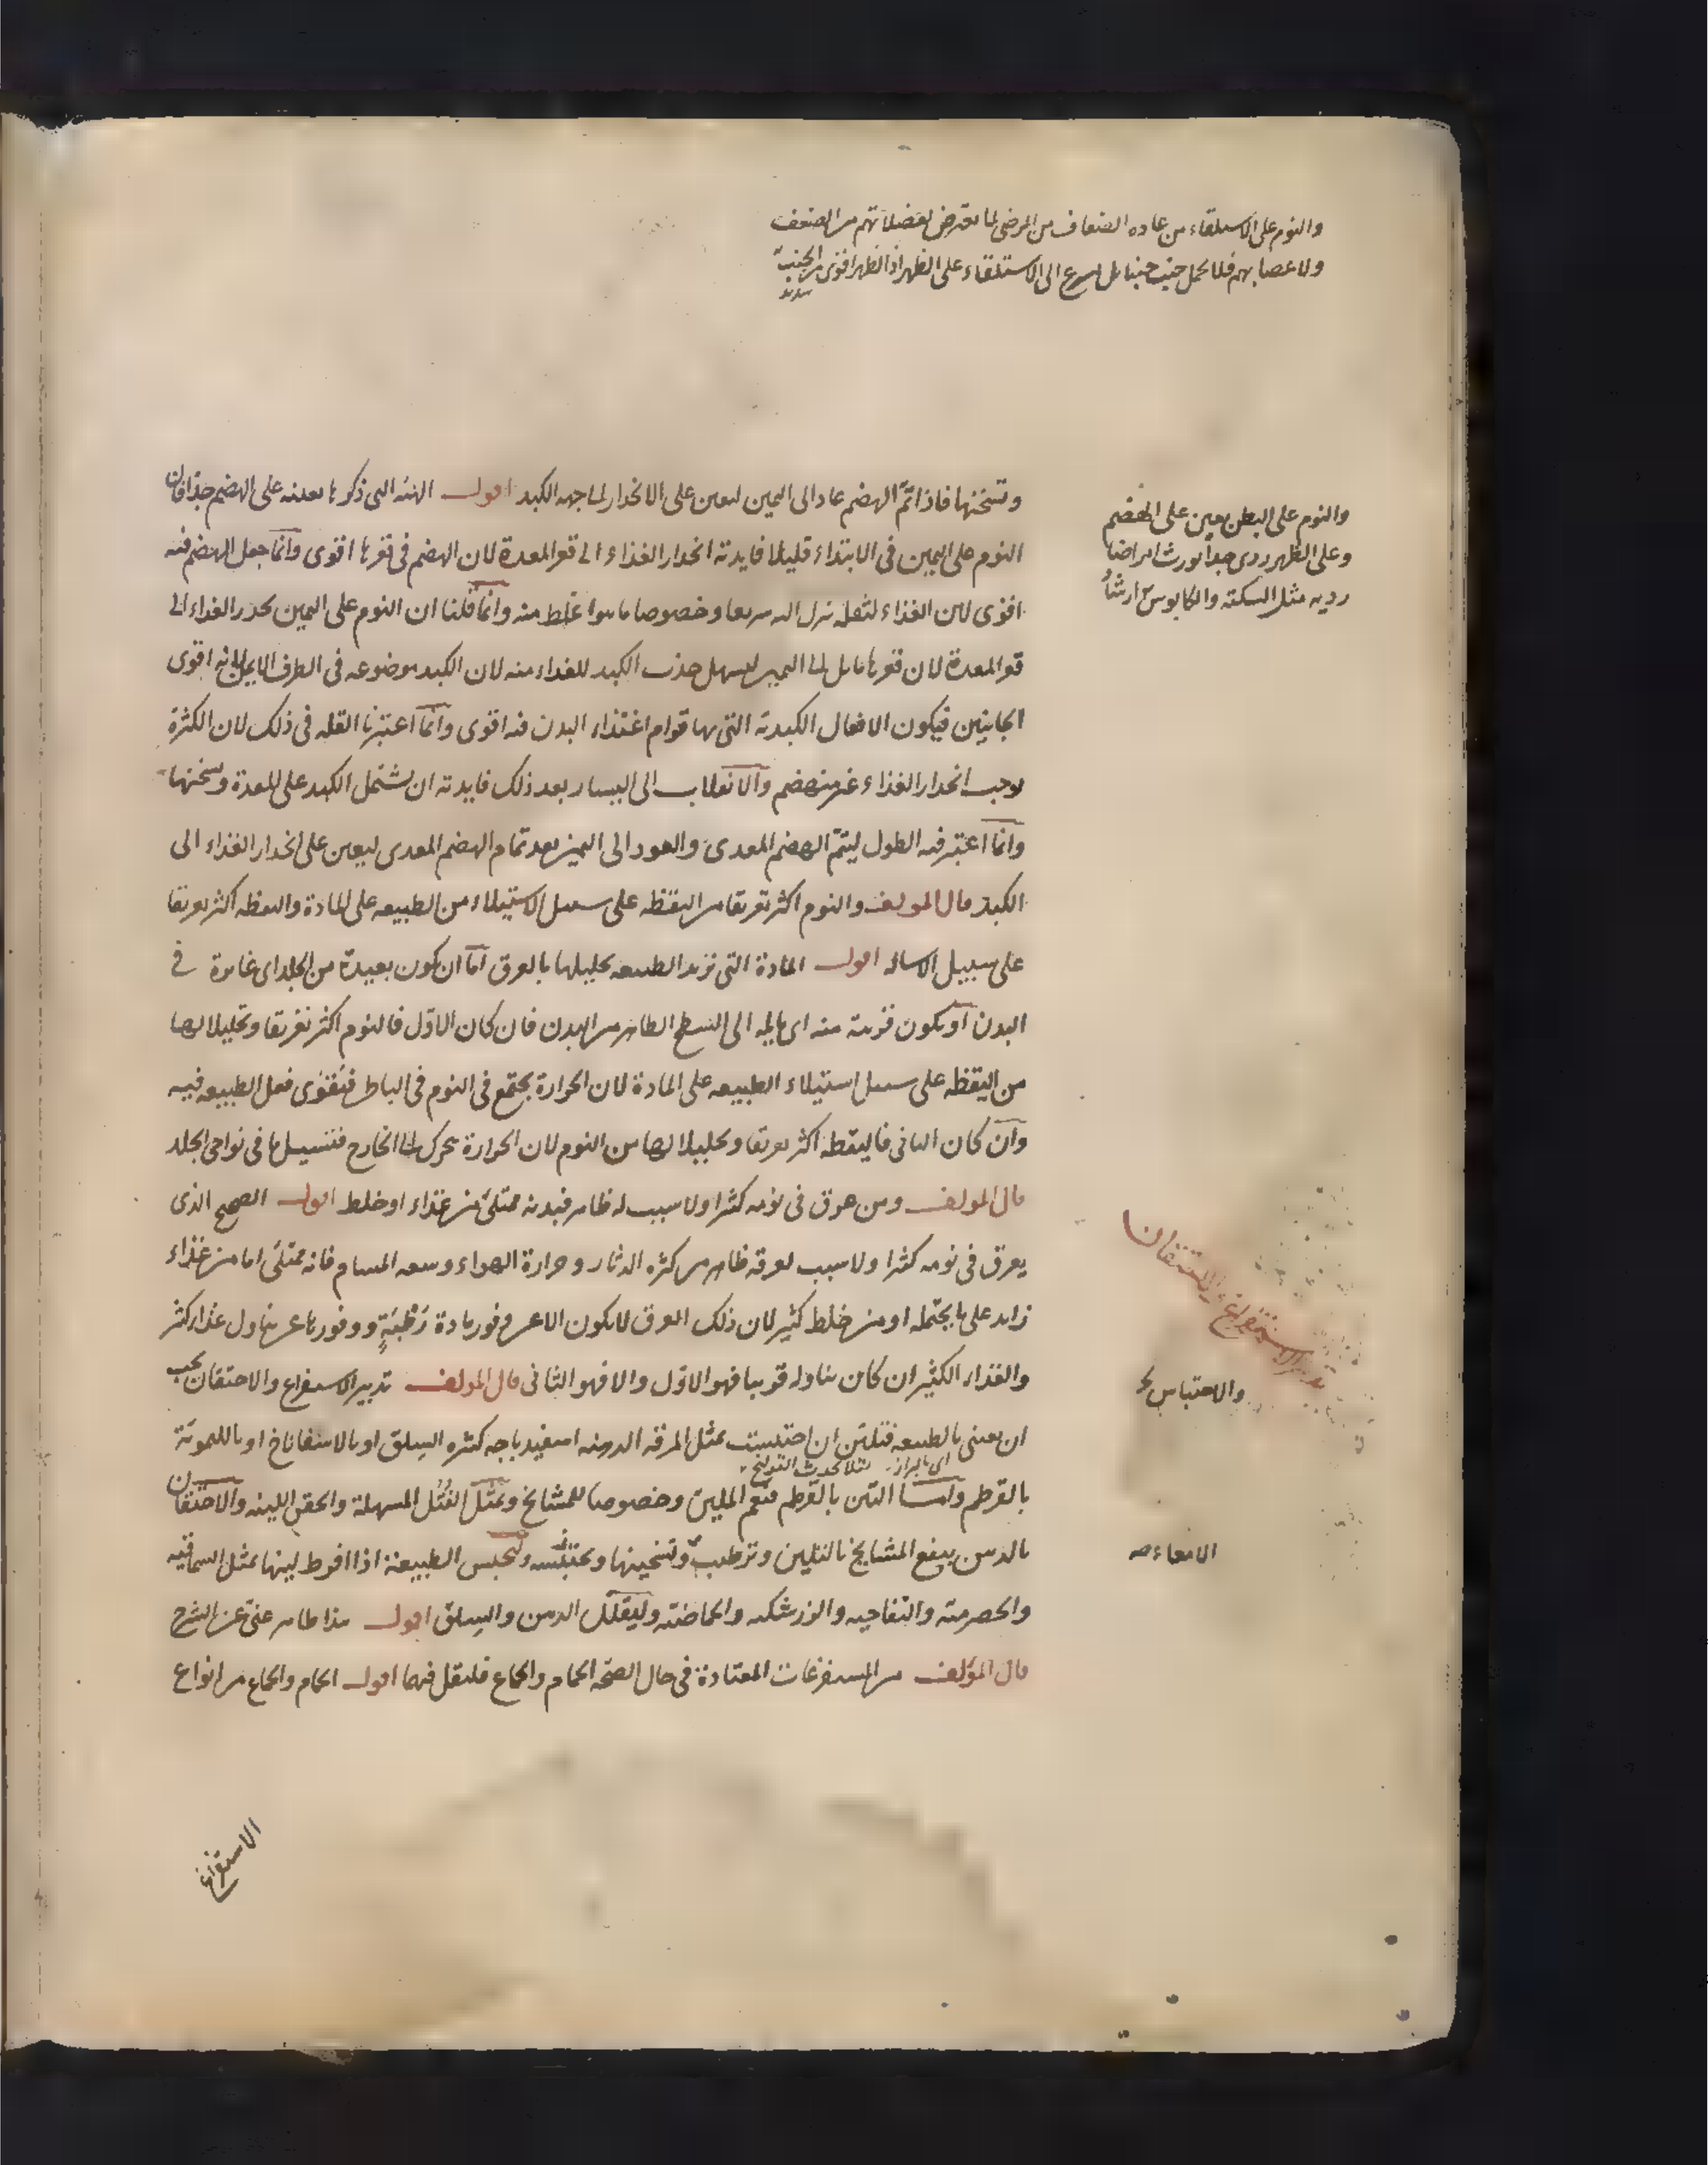 والنوم على الاستلقاء من عادة الضعاف من المرضى لما يعرض لعضلاتهم من الضعف
ولاعصابهم فلا يحمل جنب جنبا بل يسرع الى الاستلقاء على الظهر اذ الظهر اقوى من الجنب
سديد
وتسخنها فاذا تمّ الهضم عاد الى اليمين ليعين على الانحدار الى جهه الكبد اقول الهيئه التى ذكرها معينه على الهضم جدّا فان
النوم على اليمين فى الابتداء قليلا فايدته انحدار الغذاء الى قعر المعدة لان الهضم فى قعرها اقوى وانّما جعل الهضم فيه
اقوى لان الغذاء لثقله ينزل اليه سريعا وخصوصا ما هو اغلظ منه وانّما قلنا ان النوم على اليمين يحدر الغذاء الى
قعر المعدة لان قعرها مايل الى اليمين ليسهل جذب الكبد للغذاء منه لان الكبد موضوعه فى الطرف الايمن لانه اقوى
الجانبين فيكون الافعال الكبديّه التى بها قوام اغتذاء البدن فيه اقوى وانّما اعتبرنا القله فى ذلك لان الكثرة
يوجب انحدار الغذاء غير منهضم والانقلاب الى اليسار بعد ذلك فايدته ان يشتمل الكبد على المعدة ويسخنها
وانّما اعتبر فيه الطول ليتمّ الهضم المعدى والعود الى اليمين بعد تمام الهضم المعدى ليعين على انحدار الغذاء الى
الكبد قال المولف والنوم اكثر تعريقا من اليقظه على سبيل الاستيلاء من الطبيعه على المادة واليقظه اكثر تعريقا
على سبيل الاساله اقول المادة التى تريد الطبيعه تحليلها بالعرق امّا ان يكون بعيدة من الجلد اى غايرة فى
البدن او يكون قريبة منه اى مايلة الى السطح الظاهر من البدن فان كان الاوّل فالنوم اكثر تعريقا وتحليلا لها
من اليقظه على سبيل استيلاء الطبيعه على المادة لان الحرارة يجتمع فى النوم فى الباطن فيقوى فعل الطبيعه فيه
وان كان الثانى فاليقظه اكثر تعريقا وتحليلا لها من النوم لان الحرارة يتحرك الى الخارج فتسيلها فى نواحى الجلد
قال المولف ومن عرق فى نومه كثيرا ولا سبب له ظاهر فبدنه ممتلئ من غذاء او خلط اقول الصحيح الذى
يعرق فى نومه كثيرا ولا سبب لعرقه ظاهر من كثره الدثار وحرارة الهواء وسعه المسام فانه ممتلئ اما من غذاء
زايد على ما يحتمله او من خلط كثير لان ذلك العرق لا يكون الا عن وفور مادة رَطْبَةٍ ووفورها عن تناول غذاء كثير
والغذاء الكثير ان كان تناوله قريبا فهو الاوّل والا فهو الثانى قال المولف تدبير الاستفراغ والاحتقان يجب
ان يعنى بالطبيعه فتليّن ان احتبست بمثل المرقه الدهنه اسفيدباجه كثيره السلق او بالاسفاناخ او بالليمونّة
اى البراز لئلا يحدث القولنج
بالقرطم وامّا التين بالقرطم فنعم الملين وخصوصا للمشايخ وبمثل الفُتُل المسهلة والحقن اللينه والاحتقان
بالدهن ينفع المشايخ بالتليين وترطيب وتسخينها وتحبس الطبيعة اذا افرط لينها بمثل السماقيه
والحصرميّه والتفاحيه والزرشكيه والحماضيّه وليقلّل الدهن والسلق اقول هذا ظاهر غنىّ عن الشرح
قال المؤلف من المستفرغات المعتادة فى حال الصحّه الحمام والجماع فلنقل فيهما اقول الحمام والجماع من انواع
والنوم على البطن يعين على الهضم
وعلى الظهر ردى جدا يورث امراضا
رديه مثل السكته والكابوس ارشا
تدبير الاستفراغ والاحتقان
والاحتباس
الامعاء صه
الاستفراغ